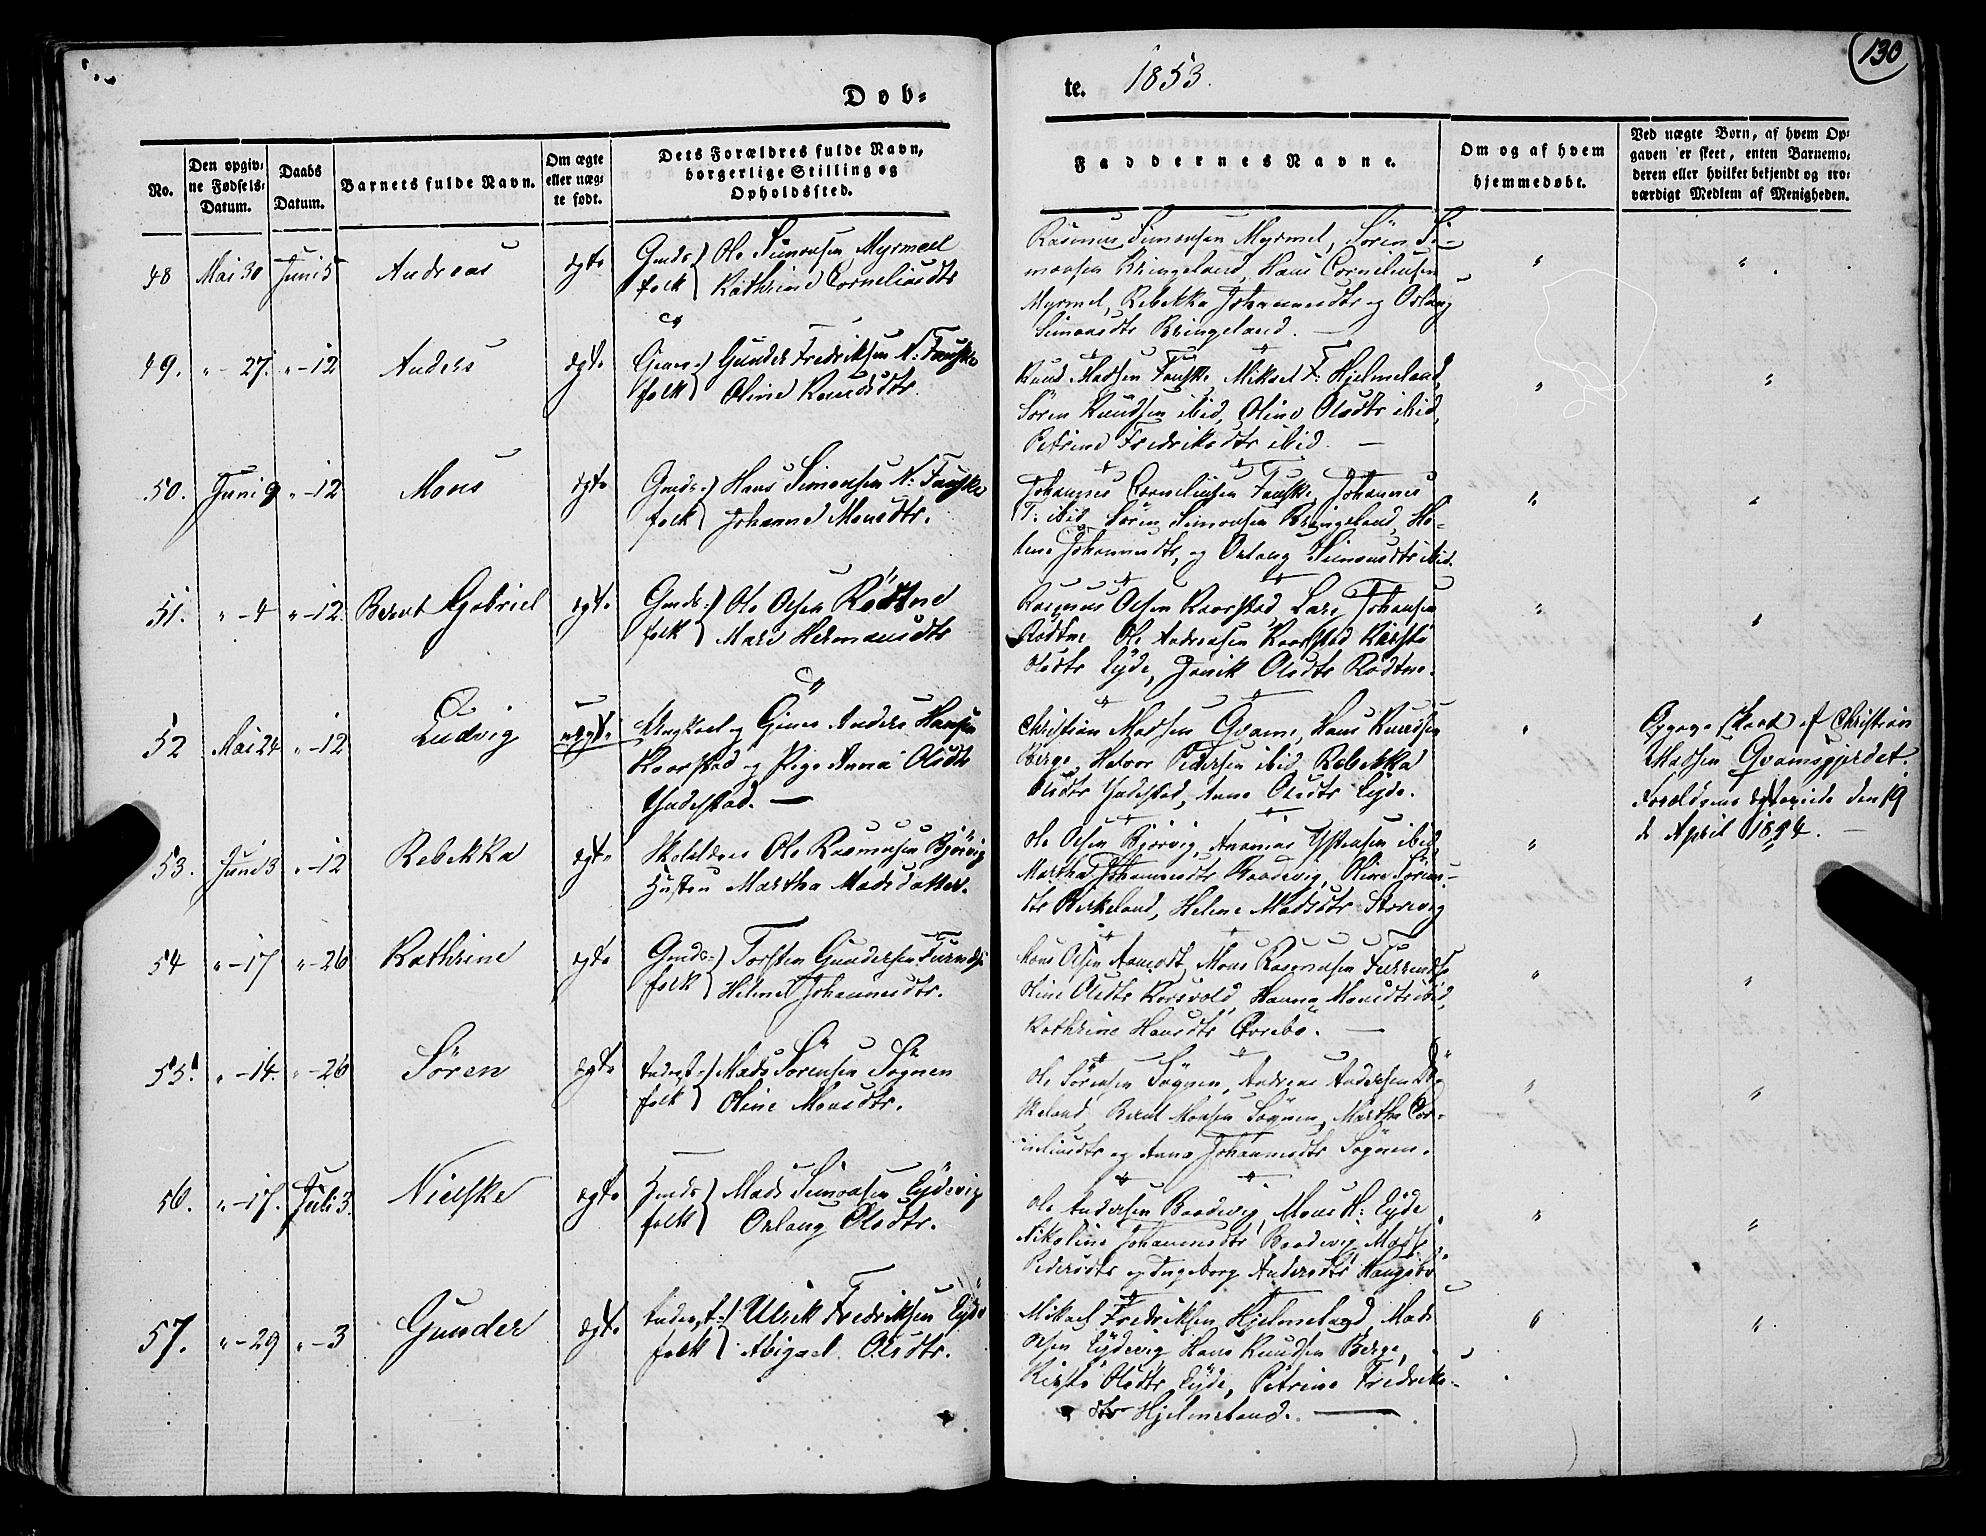 130
Døb-
te. 1853.
No.
Den opgiv-
ne Fødsels-
Datum.
Daabs
Datum.
Barnets fulde Navn.
Om ægte
eller uæg-
te født.
Dets Forældres fulde Navn,
borgerlige Stilling og
Opholdssted.
Faddernes Navne.
Om og af hvem
hjemmedøbt.
Ved uægte Børn, af hvem Op-
gaven er skeet, enten Barnemo-
deren eller hvilket bekjendt og tro-
værdigt Medlem af Menigheden.
48 Mai 30 Juni 5 Andreas ægte
Gmds- Ole Simonsen Myrmel
folk Kathrine Corneliusdtr
Rasmus Simonsen Myrmel, Sören Si-
monsen Bringeland, Hans Corneliusen
Myrmel, Rebekka Johannesdtr og Orlaug
Simonsdtr Bringeland. —
49. " - 27. " - 12 Anders ægte
Gunder Fredriksen N: Fauske
folk Oline Knudsdtr.
Knud Madsen Fauske, Mikael F: Hjelmeland,
Sören Knudsen ibid, Oline Olsdtr ibid,
Petrine Fredriksdtr ibid. —
50. Juni 9 " - 12 Mons ægte
Gmds- Hans Simonsen N: Fauske
folk Johanne Monsdtr.
Johannes Corneliusen Fauske, Johannes
T: ibid, Sören Simonsen Bringeland, He-
lene Johannesdtr, og Orlaug Simonsdtr ibid.
51. " - 4 " - 12. Bernt Gabriel ægte
Gmds- Ole Olsen Rödtne
folk Mari Hermansdtr
Rasmus Olsen Kaarstad, Lars Johansen
Rödtne, Ole Andersen Kaarstad, Kirsti
Olsdtr Eyde, Olsdtr Rödtne.
52 Mai 24 " - 12 Ludvig uægte
Ungkarl og Anders Hansen
Kaarstad og Pige Anna Olsdtr
Yndestad. —
Christian Madsen Qvamme, Hans Knudsen
Berge, Halvor Pedersen ibid, Rebekka
Olsdtr Yndestad, Anne Olsdtr Eyde.
Opgave skeed af Christian
Madsen Qvamsgjerdet.
Forældrene den 19
de April 1854. —
53. Juni 3 " - 12 Rebekka ægte
Skolelærer Ole Rasmusen Björvig
Hustru Martha Madsdatter.
Ole Olsen Björvig, ibid,
Martha Johannesdtr Baadevig, Oline Sörens-
dtr Birkeland, Helene Madsdtr Storevig
54 " - 17 " - 26 Kathrine ægte
Gmds- Torsten Gundersen
folk Helene Johannesdtr.
Mons Olsen, Mons Rasmusen
Oline Olsdtr Korsvold, Hanna Monsdtr ibid,
Kathrine Hansdtr Övrebö. —
55. " - 14. " - 26 Sören ægte
Inderst- Mads Sörensen Sögnen
folk Oline Monsdtr.
Ole Sörensen Sögnen, Andreas Andersen Bir-
keland, Bernt Monsen Sögnen, Martha Cor-
neliusdtr og Anna Johannesdtr Sögnen.
56. " - 17. Juli 3. Nielske ægte
Gmds Mads Simonsen Eydevig
folk Orlaug Olsdtr.
Ole Andersen Baadevig, Mons H: Eyde
Nikoline Johannesdtr Baadevig,
Pedersdtr og Ingeborg Andersdtr Haugsbö
57. " - 29 " - 3 Gunder ægte
Inderst- Ulrik Fredriksen Eyde
folk Abigael Olsdtr.
Mikael Fredriksen Hjelmeland, Mads
Olsen Eydevig, Hans Knudsen Berge,
Kirsti Olsdtr Eyde, Petrine Fredriks-
dtr Hjelmeland. —